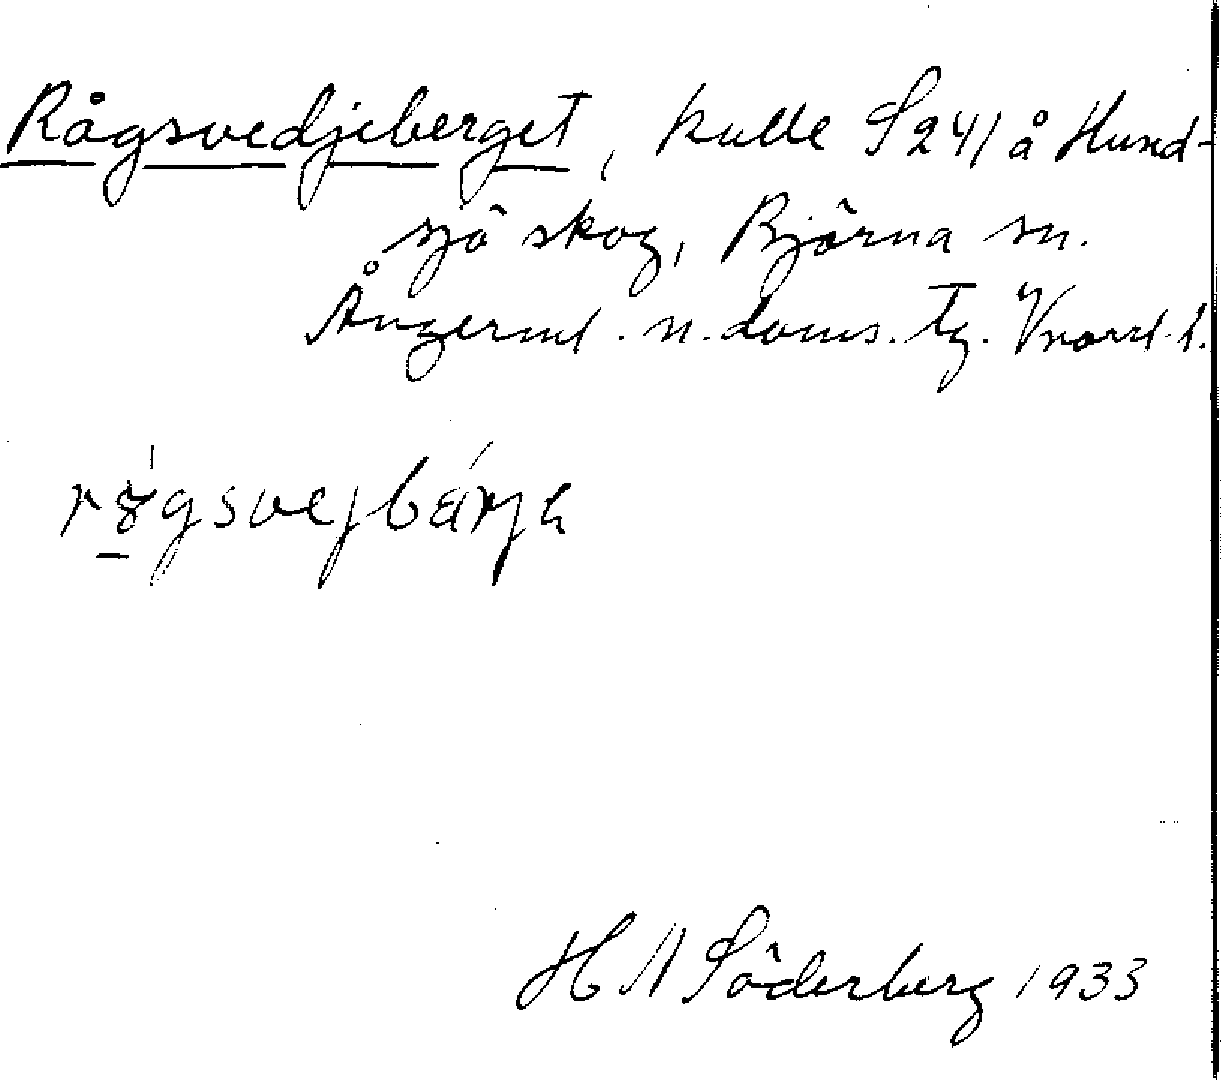 Rågsvedjeberget, kulle S 241 å Hund-
sjö skog, Björna sn.
Ångerml. n. doms. tg. Vnorrl. l.
H A Söderberg 1933